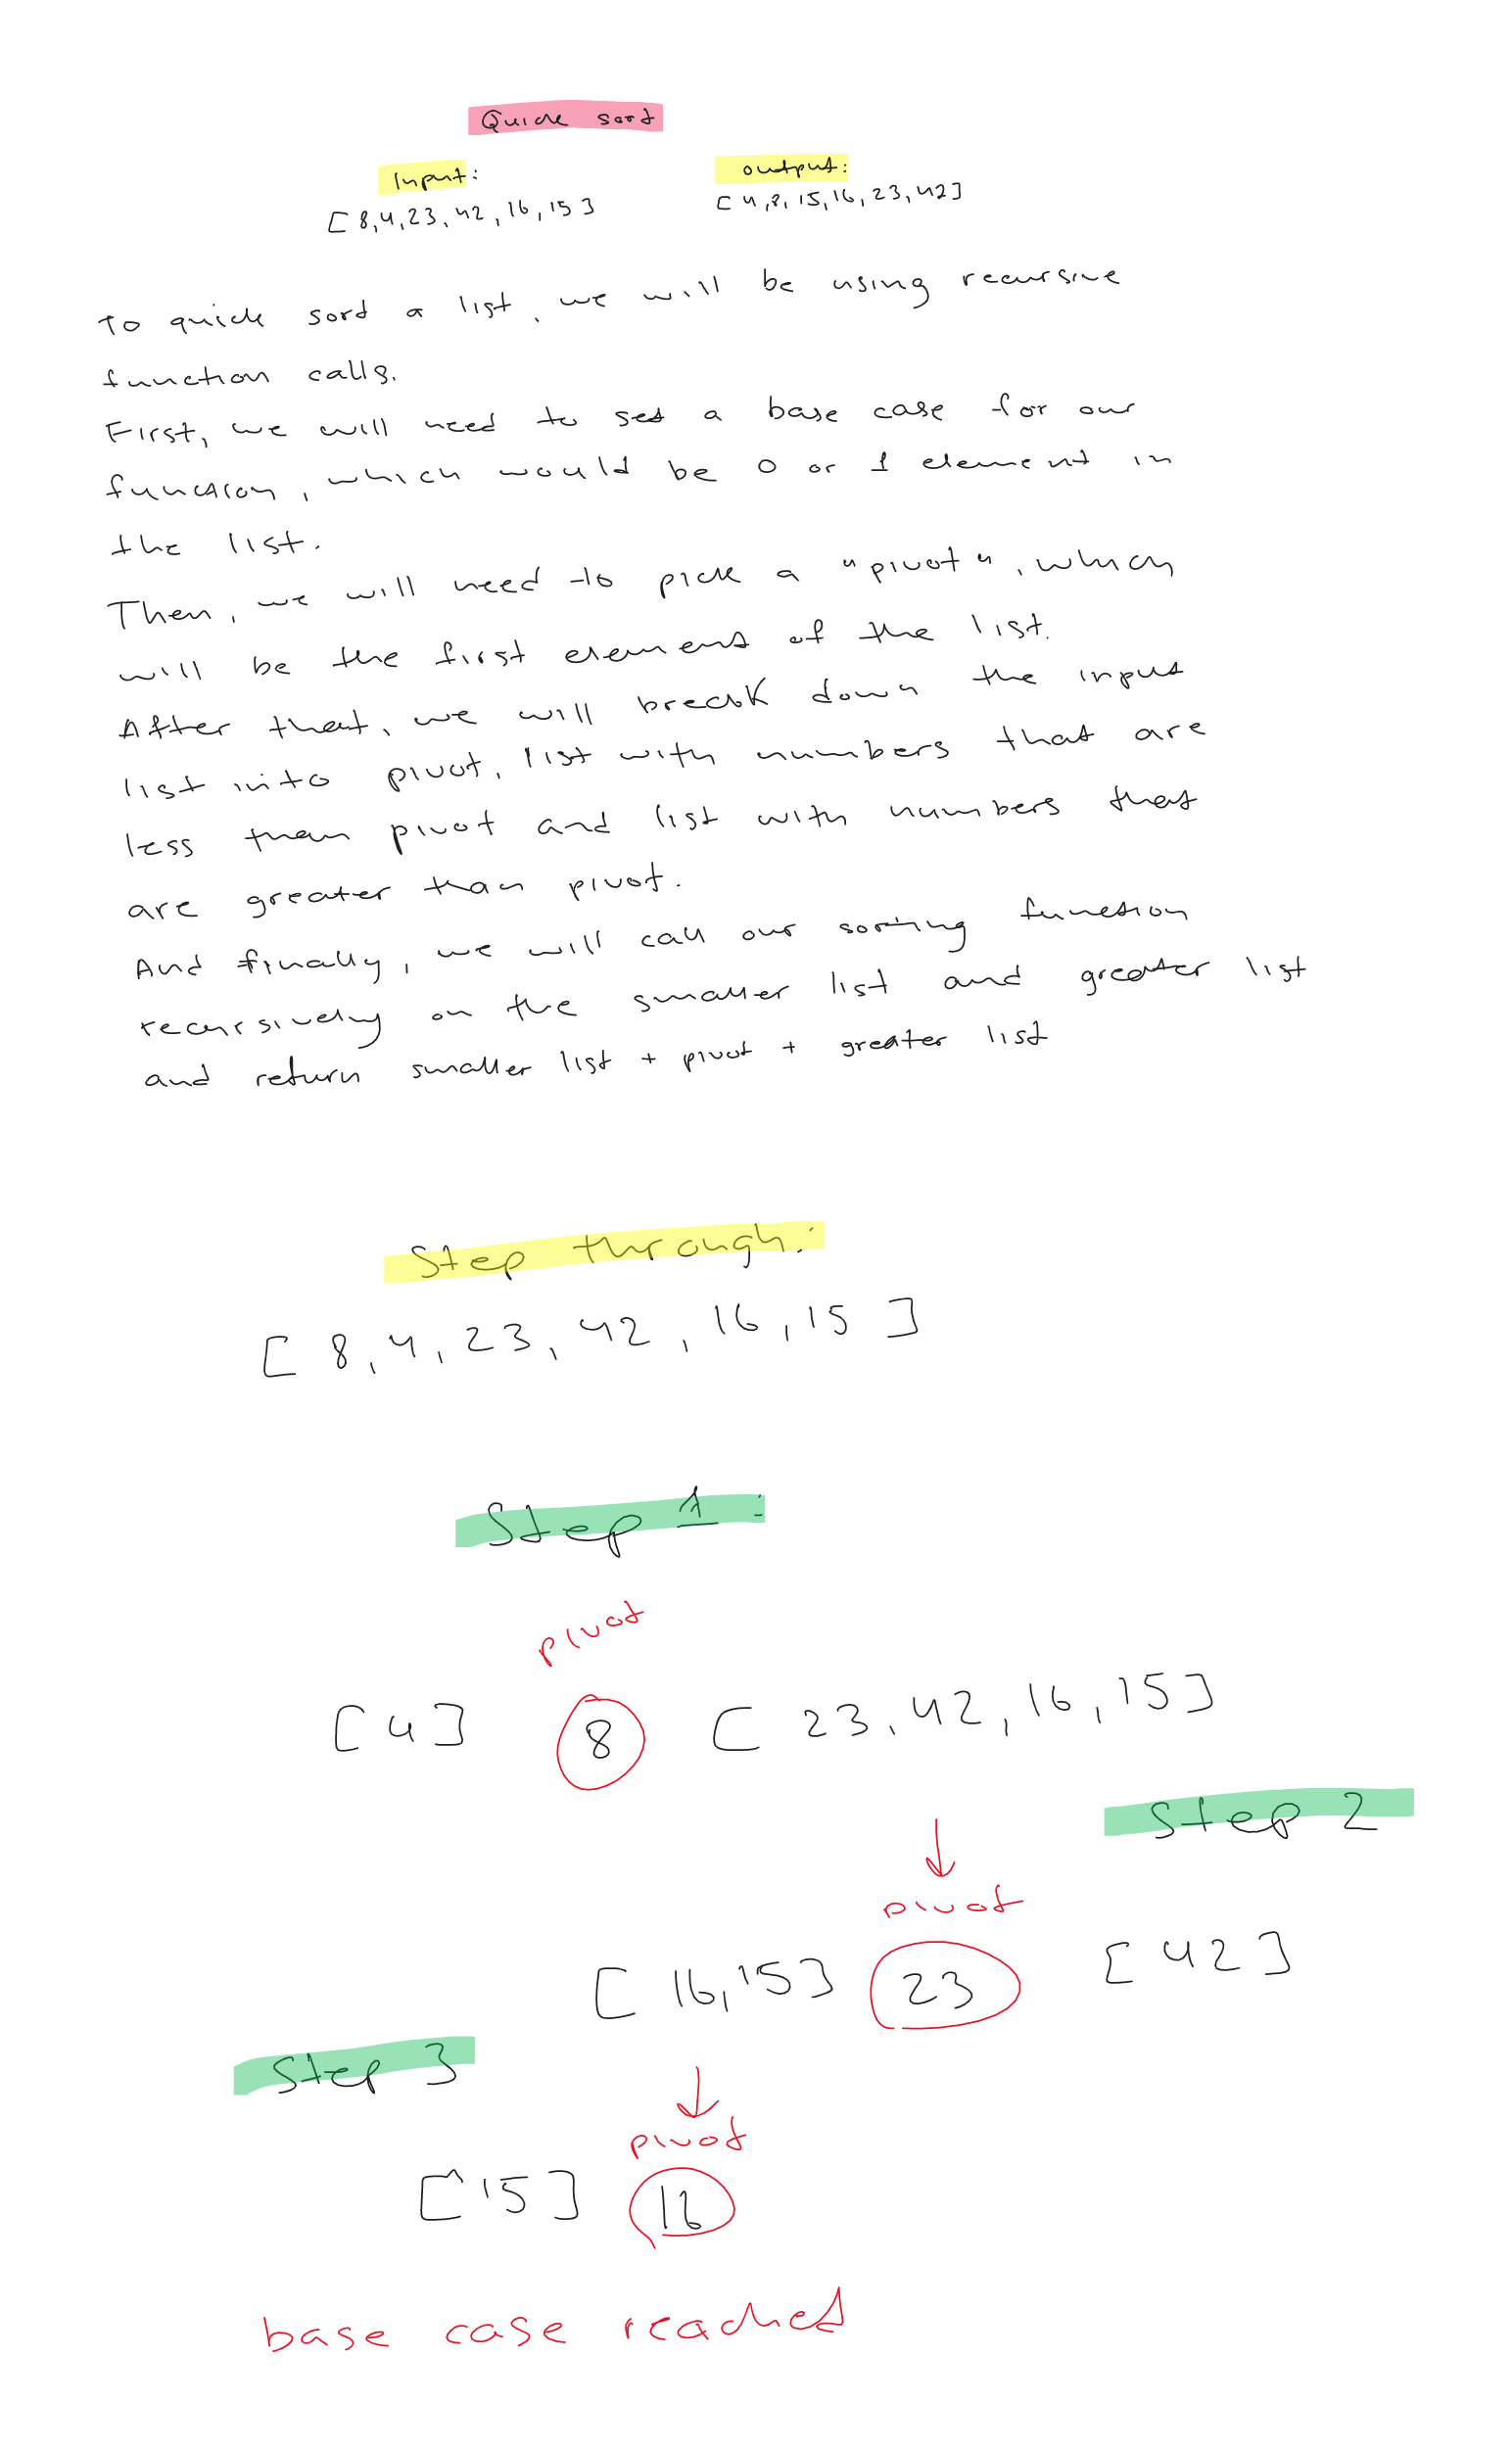 Quick sort
Input: output:
[8,4,23,42,16,15] [4,8,15,16,23,42]
To quick sort a list, we will be using recursive
function calls.
First, we will need to set a base case for our
function, which would be 0 or 1 element in
the list.
Then, we will need to pick a "pivot", which
will be the first element of the list.
After that, we will break down the input
list into pivot, list with numbers that are
less than pivot and list with numbers that
are greater than pivot.
And finally, we will call our sorting function
recursively on the smaller list and greater list
and return smaller list + pivot + greater list
Step through:
[8,4,23,42,16,15]
Step 1:
pivot
[4] 8 [23,42,16,15]
Step 2
pivot
[16,15] 23 [42]
Step 3
pivot
[15] 16
base case reached